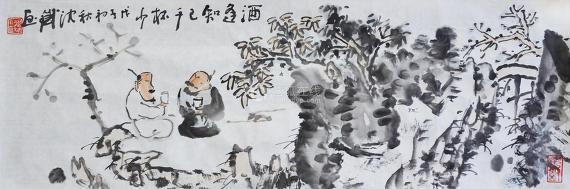 酒逢知己千杯少戊子初秋沈